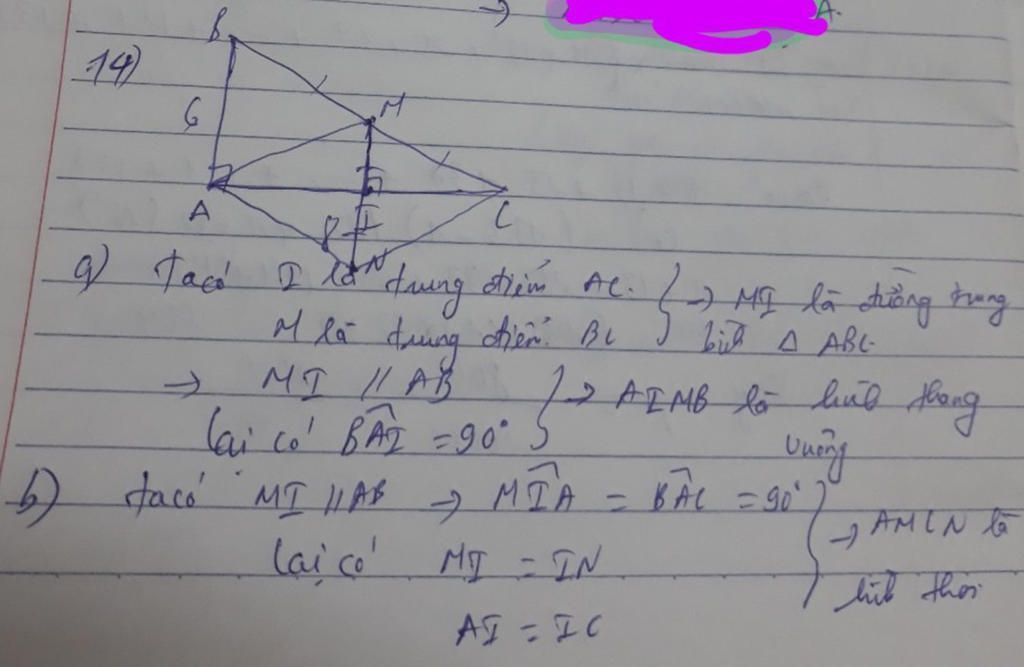 → A.
14)
B
6
M
A
I
C
P
N
a) Ta có I là trung điểm AC. } → MI là đường trung
M là trung điểm BC bình Δ ABC
→ MI // AB } → AIMB là hình thang
Lại có BÂI = 90° vuông
b) ta có MI // AB → MÎA = BÂC = 90° } → AMCN là
Lại có MI = IN hình thoi
AI = IC